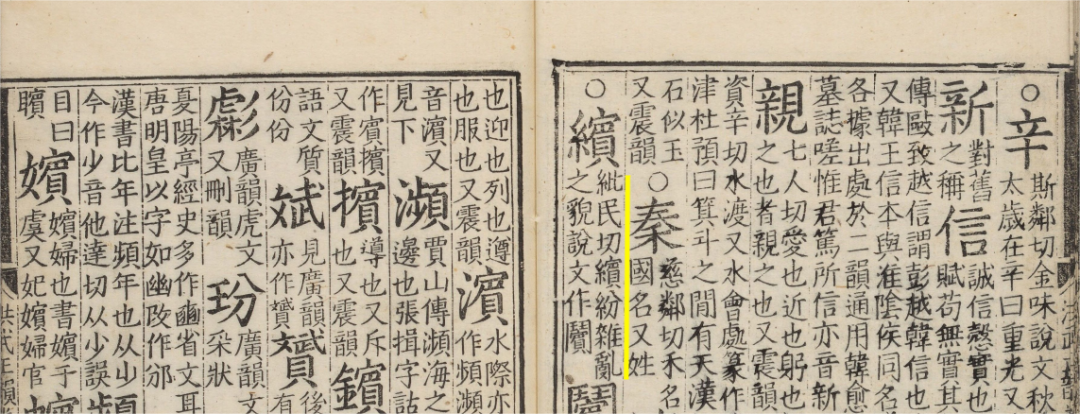 ○辛 斯鄰切金味說文秋
太歲在辛曰重光又
新 對舊之稱 信 誠信慤實也
賦苟無實其
傳歐致越信謂彭越韓信也
又韓王信本與淮陰侯同名
各據出處於二韻通用韓愈
墓誌嗟惟君篤所信亦音新
親 七人切愛也近也躬也
之也者親之也又震韻
資辛切水渡又水會處篆作
津杜預曰箕斗之間有天漢
石似玉
又震韻 ○秦 慈鄰切禾名
國名又姓
○繽 紕民切繽紛雜亂
之貌說文作
也迎也列也遵
也服也又震韻 濱 水際亦
作頻瀕
音濱又
見下 瀕 賈山傳瀕海之
邊也張揖字詁
作賓擯
又震韻 擯 導也又斥
也又震韻 鑌
語文質
份份 斌 見廣韻
亦作贇 贇 後
有
彪 廣韻虎文
又刪韻 玢 廣韻文
采狀
憂陽亭經史多作豳省文耳
唐明皇以字如幽改作邠
漢書比年注頻年也从
今作少音他達切从少誤
目曰
矉 嬪 嬪婦也書嬪于
虞又妃嬪婦官